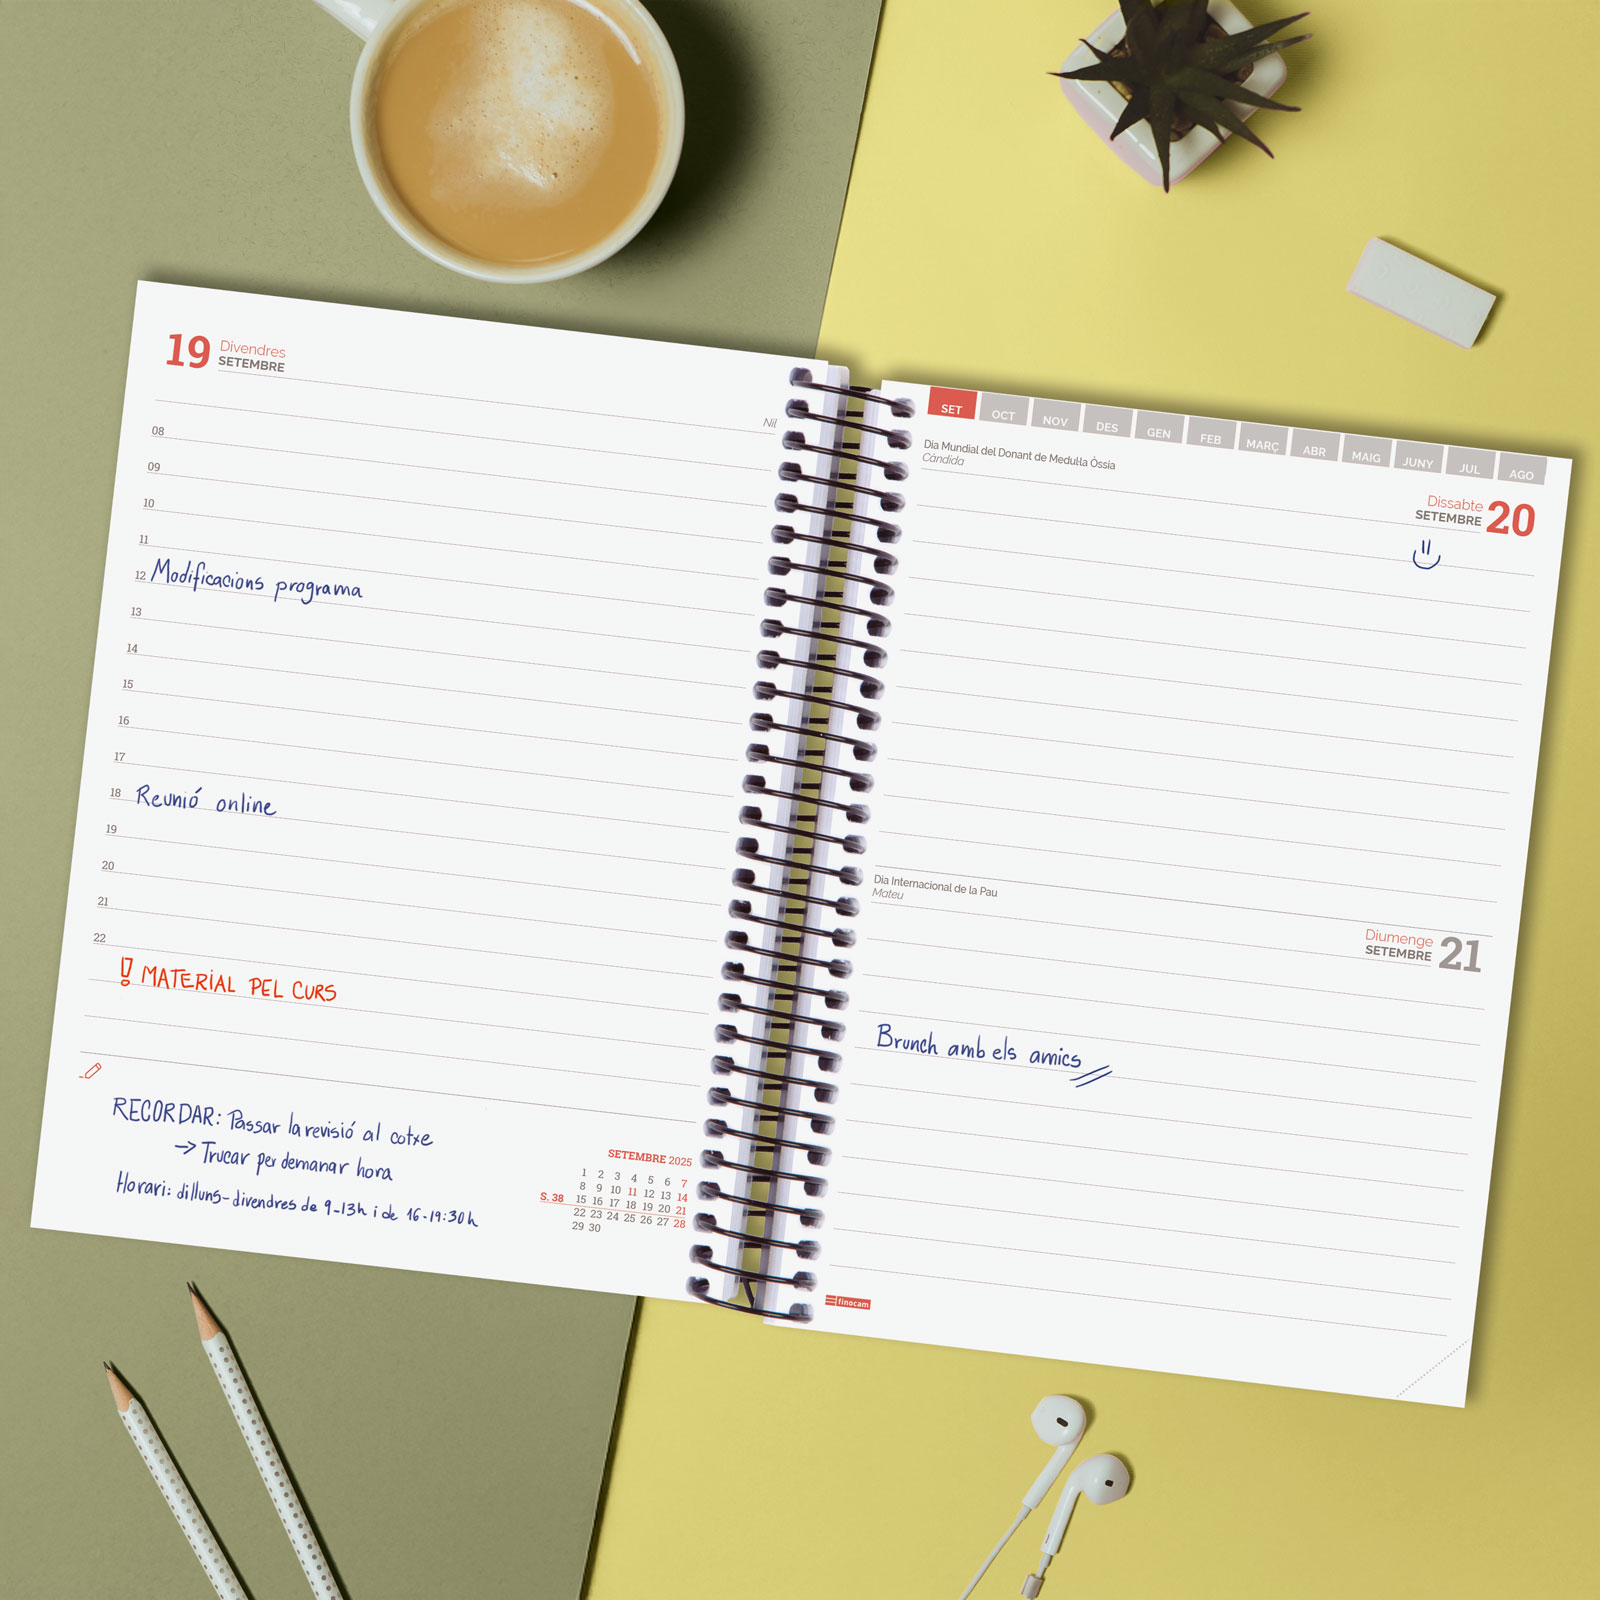 19 Divendres
SETEMBRE
Nil
08
09
10
11
12 Modificacions programa
13
14
15
16
17
18 Reunió online
19
20
21
22
! MATERIAL PEL CURS
RECORDAR: Passar la revisió al cotxe
→ Trucar per demanar hora
Horari: dilluns-divendres de 9-13h i de 16-19:30h
SETEMBRE 2025
1 2 3 4 5 6 7
8 9 10 11 12 13 14
S. 38 15 16 17 18 19 20 21
22 23 24 25 26 27 28
29 30
SET OCT NOV DES GEN FEB MARÇ ABR MAIG JUNY JUL AGO
Dia Mundial del Donant de Medul·la Òssia
Càndida
Dissabte 20
SETEMBRE
Dia Internacional de la Pau
Mateu
Diumenge 21
SETEMBRE
Brunch amb els amics
finocam